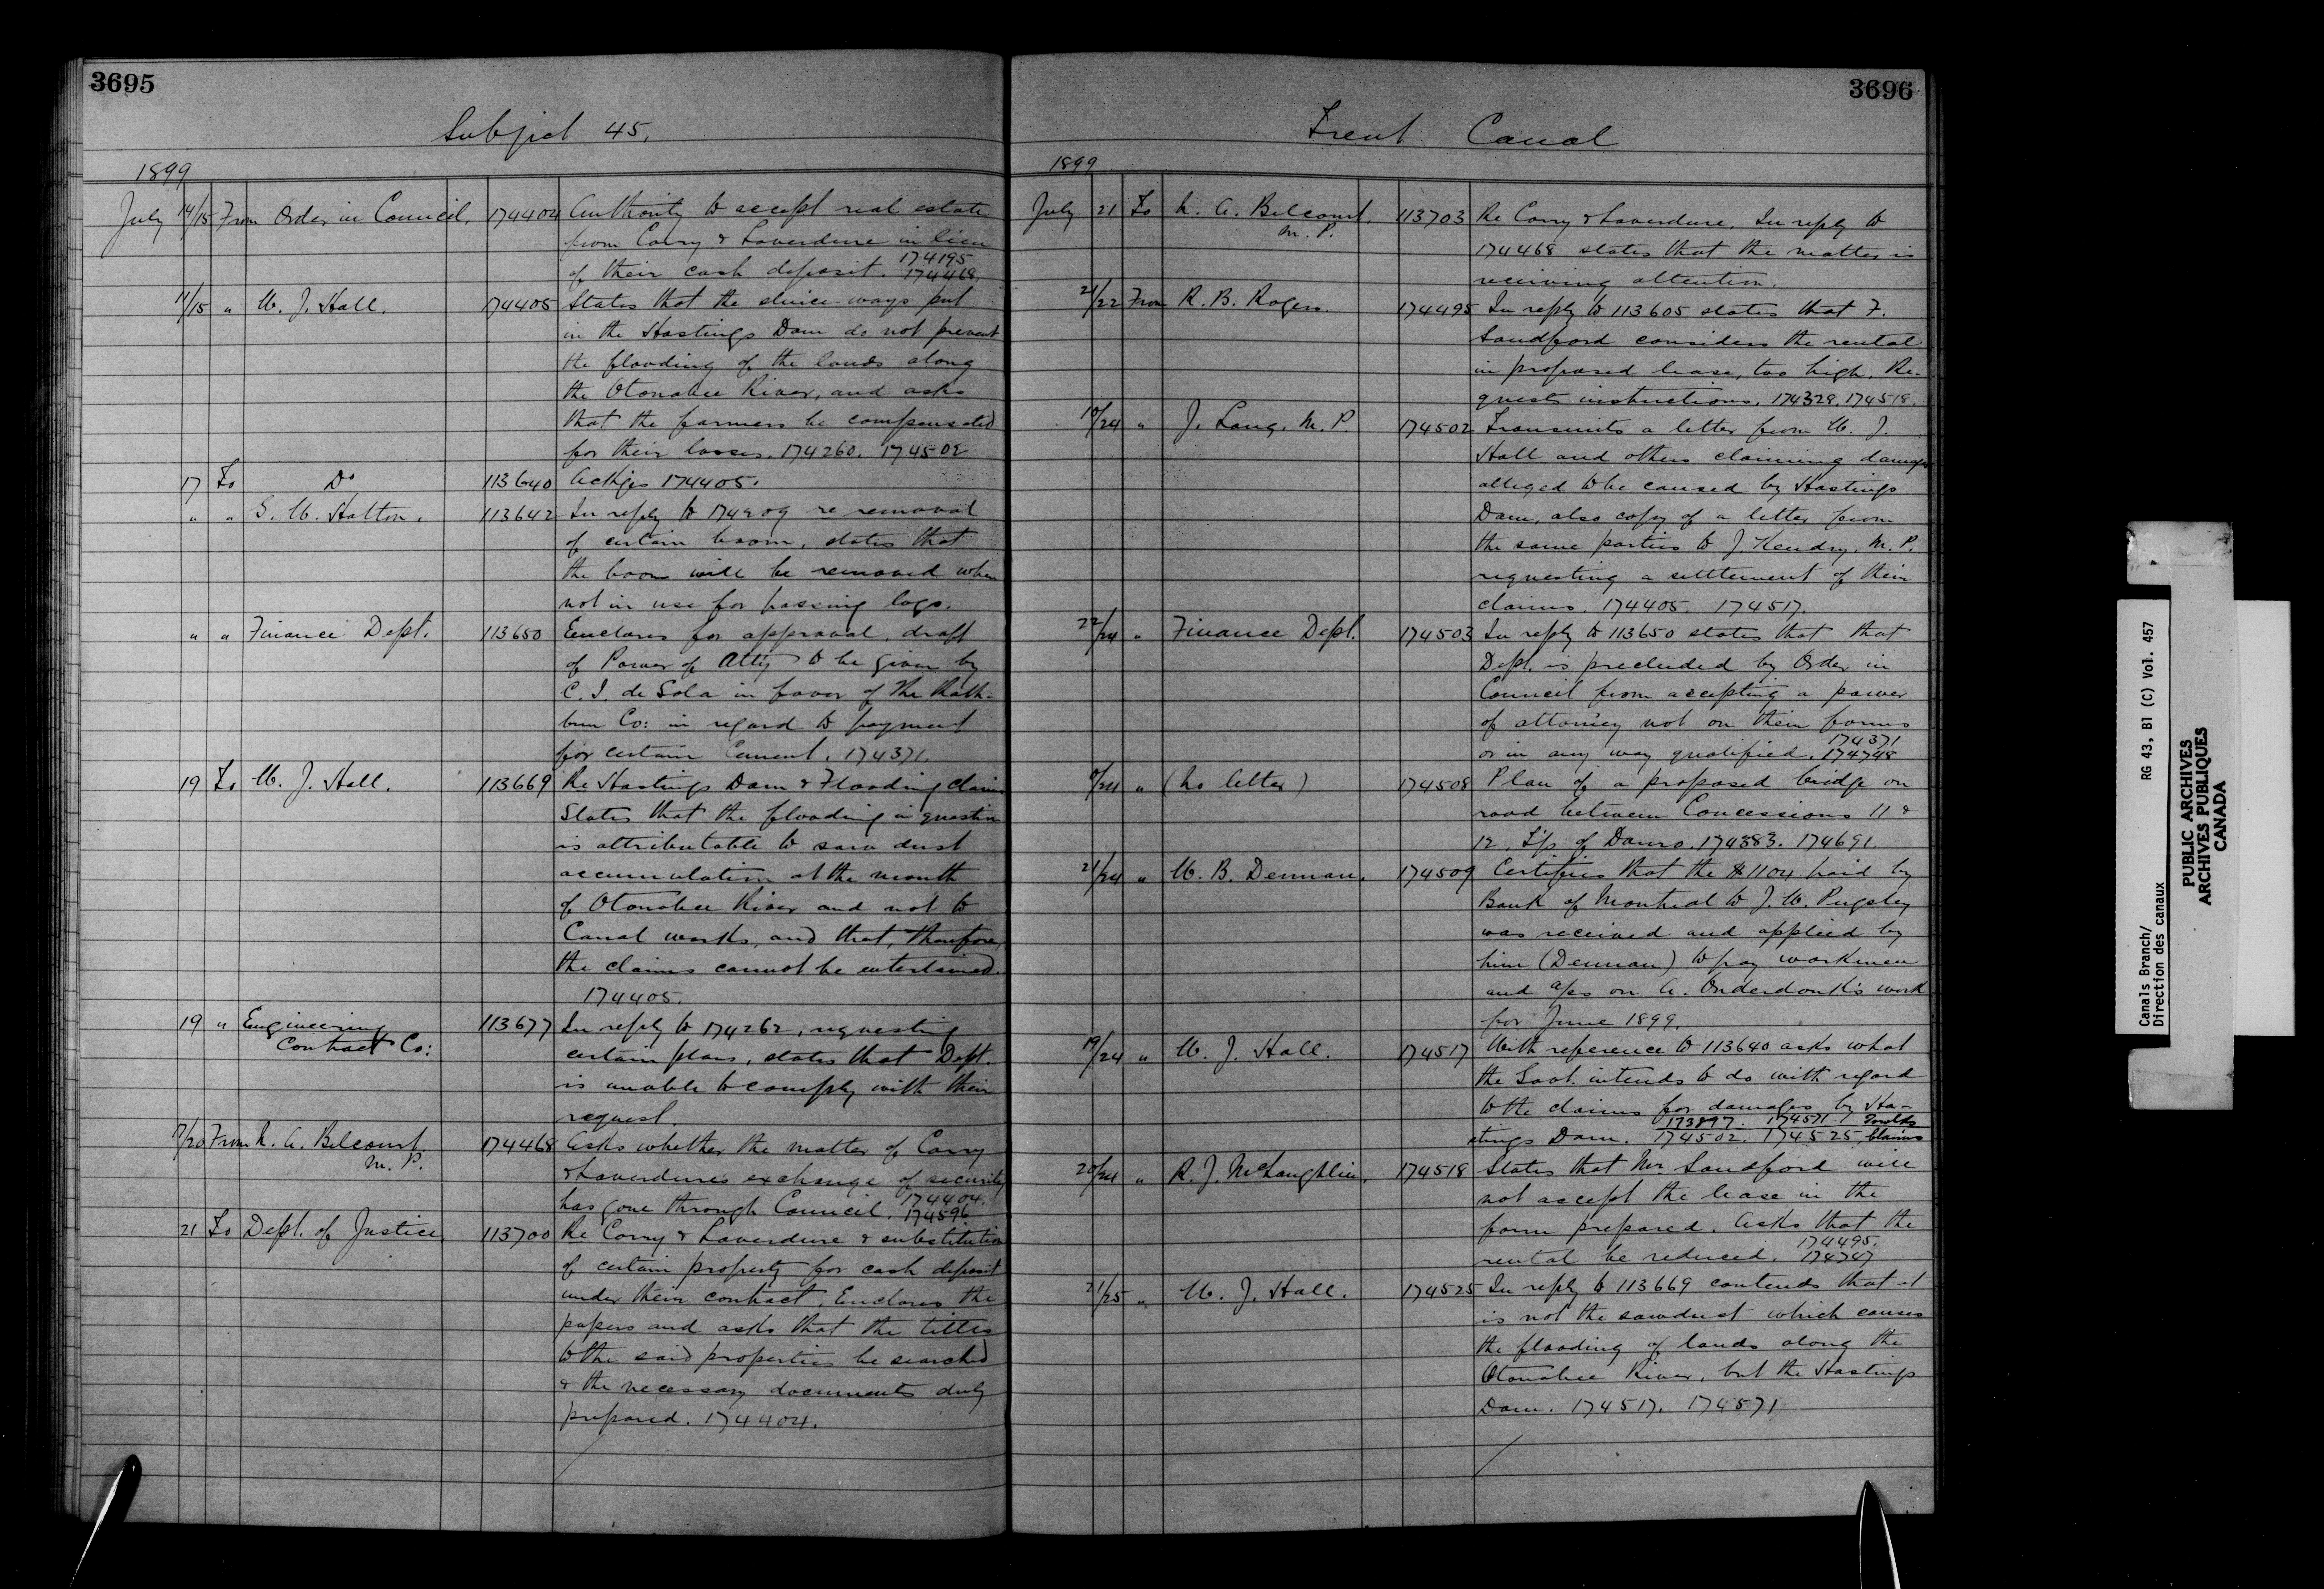 3695
Subject 45.
1899
July 14/15 From Order in Council. 174404 Authority to accept real estate
from Corry & Laverdure in lieu
174195
of their cash deposit. 174468
11/15 " W. J. Hall. 174405 States that the sluice-ways put
in the Hastings Dam do not prevent
the flooding of the lands along
the Otonabee River, and asks
that the farmers be compensated
for their losses. 174260. 174502
17 To Do 113640 Ackges 174405.
" " S. W. Hatton. 113642 In reply to 174209 re removal
of certain boom, states that
the boom will be removed when
not in use for passing logs.
" " Finance Dept. 113650 Encloses for approval, draft
of Power of Atty to be given by
C. I. de Sola in favor of The Rath-
bun Co: in regard to payment
for certain Cement. 174371.
19 To W. J. Hall. 113669 Re Hastings Dam & Flooding claims
States that the flooding in question
is attributable to saw dust
accumulation at the mouth
of Otonabee River and not to
Canal works, and that, therefore,
the claims cannot be entertained.
174405.
19 " Engineering 113677 In reply to 174262, requesting
Contract Co:
certain plans, states that Dept.
is unable to comply with their
request.
17/20 From N. A. Belcourt 174468 Asks whether the matter of Corry
M. P.
& Laverdure's exchange of security
174404.
has gone through Council. 174596
21 To Dept. of Justice 113700 Re Corry & Laverdure & substitution
of certain property for cash deposit
under their contract. Encloses the
papers and asks that the titles
to the said properties be searched
& the necessary documents duly
prepared. 174404.
3696
Trent Canal
1899
July 21 To N. A. Belcourt. 113703 Re Corry & Laverdure. In reply to
M. P.
174468 states that the matter is
receiving attention.
21/22 From R. B. Rogers. 174495 In reply to 113605 states that F.
Sandford considers the rental
in proposed lease, too high. Re-
quests instructions. 174328. 174518.
18/24 " J. Lang. M. P. 174502 Transmits a letter from W. J.
Hall and others claiming damages
alleged to be caused by Hastings
Dam, also copy of a letter from
the same parties to J. Kendry. M. P.
requesting a settlement of their
claims. 174405. 174517.
22/24 " Finance Dept. 174503 In reply to 113650 states that that
Dept. is precluded by Order in
Council from accepting a power
of attorney not on their forms
174371
or in any way qualified. 174748
/24 " (No letter) 174508 Plan of a proposed bridge on
road between Concessions 11 &
12, T'p of Dummo. 174383. 174691.
21/24 " W. B. Denman. 174509 Certifies that the $1104 paid by
Bank of Montreal to J. W. Pugsley
was received and applied by
him (Denman) to pay workmen
and a/cs on A. Onderdonk's work
for June 1899.
19/24 " W. J. Hall. 174517 With reference to 113640 asks what
the Govt. intends to do with regard
to the claims for damages by Ha-
173897. 174571
stings Dam. 174502. 174525 Claims
20/24 " R. J. McLaughlin. 174518 States that Mr. Sandford will
not accept the lease in the
form prepared. Asks that the
174495.
rental be reduced. 174747
21/25 " W. J. Hall. 174525 In reply to 113669 contends that it
is not the sawdust which causes
the flooding of lands along the
Otonabee River, but the Hastings
Dam. 174517. 174571
Canals Branch/ RG 43, B1 (C) Vol. 457
Direction des canaux
PUBLIC ARCHIVES
ARCHIVES PUBLIQUES
CANADA